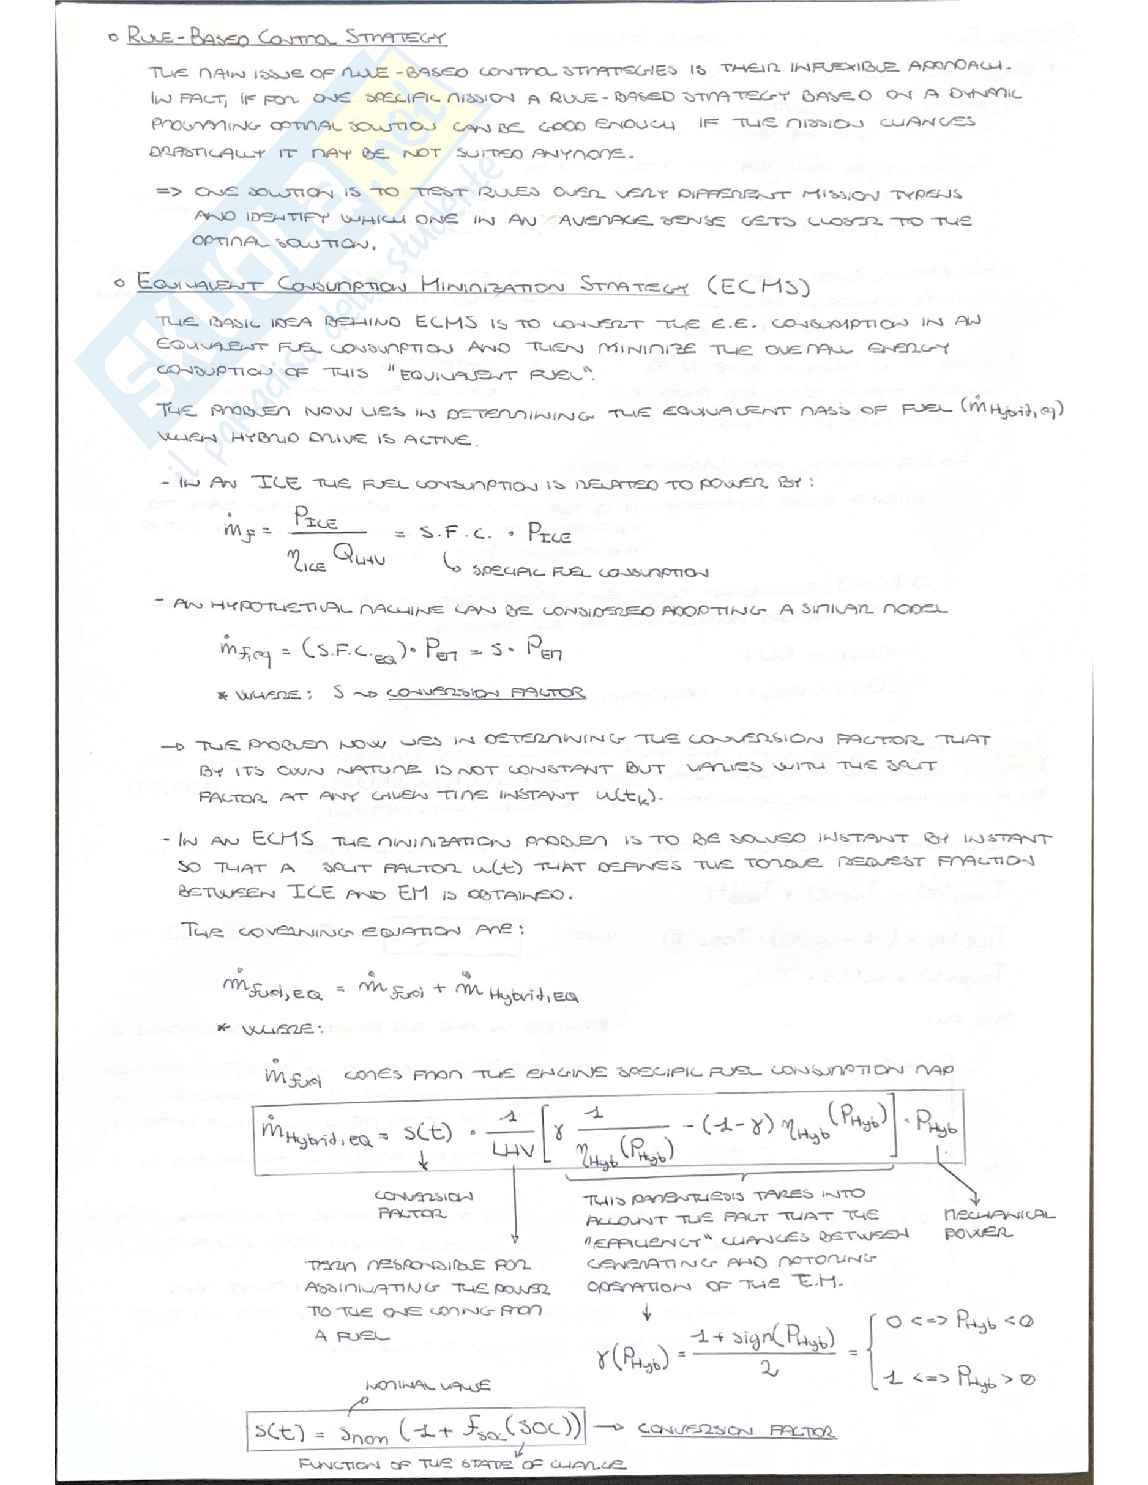 ○ RULE-BASED CONTROL STRATEGY
THE MAIN ISSUE OF RULE-BASED CONTROL STRATEGIES IS THEIR INFLEXIBLE APPROACH.
IN FACT, IF FOR ONE SPECIFIC MISSION A RULE-BASED STRATEGY BASED ON A DYNAMIC
PROGRAMMING OPTIMAL SOLUTION CAN BE GOOD ENOUGH IF THE MISSION CHANGES
DRASTICALLY IT MAY BE NOT SUITED ANYMORE.
=> ONE SOLUTION IS TO TEST RULES OVER VERY DIFFERENT MISSION TYPENS
AND IDENTIFY WHICH ONE IN AN AVERAGE SENSE GETS CLOSER TO THE
OPTIMAL SOLUTION.
○ EQUIVALENT CONSUMPTION MINIMIZATION STRATEGY (ECMS)
THE BASIC IDEA BEHIND ECMS IS TO CONVERT THE E.E. CONSUMPTION IN AN
EQUIVALENT FUEL CONSUMPTION AND THEN MINIMIZE THE OVERALL ENERGY
CONSUPTION OF THIS "EQUIVALENT FUEL".
THE PROBLEM NOW LIES IN DETERMINING THE EQUIVALENT MASS OF FUEL (ṁ_Hybrid,eq)
WHEN HYBRID DRIVE IS ACTIVE.
- IN AN ICE THE FUEL CONSUMPTION IS RELATED TO POWER BY:
ṁ_f = P_ICE / (η_ICE Q_LHV) = S.F.C. · P_ICE
↳ SPECIFIC FUEL CONSUMPTION
- AN HYPOTHETICAL MACHINE CAN BE CONSIDERED ADOPTING A SIMILAR MODEL
ṁ_f,eq = (S.F.C._EQ) · P_EM = S · P_EM
* WHERE: S ~> CONVERSION FACTOR
→ THE PROBLEM NOW LIES IN DETERMINING THE CONVERSION FACTOR THAT
BY ITS OWN NATURE IS NOT CONSTANT BUT VARIES WITH THE SPLIT
FACTOR AT ANY GIVEN TIME INSTANT u(t_k).
- IN AN ECMS THE MINIMIZATION PROBLEM IS TO BE SOLVED INSTANT BY INSTANT
SO THAT A SPLIT FACTOR u(t) THAT DEFINES THE TORQUE REQUEST FRACTION
BETWEEN ICE AND EM IS OBTAINED.
THE GOVERNING EQUATION ARE:
ṁ_fuel,EQ = ṁ_fuel + ṁ_Hybrid,EQ
* WHERE:
ṁ_fuel COMES FROM THE ENGINE SPECIFIC FUEL CONSUMPTION MAP
ṁ_Hybrid,EQ = s(t) · 1/LHV [γ 1/η_Hyb(P_Hyb) - (1-γ) η_Hyb(P_Hyb)] · P_Hyb
CONVERSION
FACTOR
TERM RESPONSIBLE FOR
ASSIMILATING THE POWER
TO THE ONE COMING FROM
A FUEL
THIS PARENTHESIS TAKES INTO
ACCOUNT THE FACT THAT THE
"EFFICIENCY" CHANGES BETWEEN
GENERATING AND MOTORING
OPERATION OF THE E.M.
MECHANICAL
POWER
γ(P_Hyb) = (1 + sign(P_Hyb)) / 2 = { 0 <=> P_Hyb < 0
1 <=> P_Hyb > 0
NOMINAL VALUE
s(t) = s_nom (1 + f_soc(SOC)) → CONVERSION FACTOR
FUNCTION OF THE STATE OF CHARGE
SKUOLA.net
il paradiso dello studente